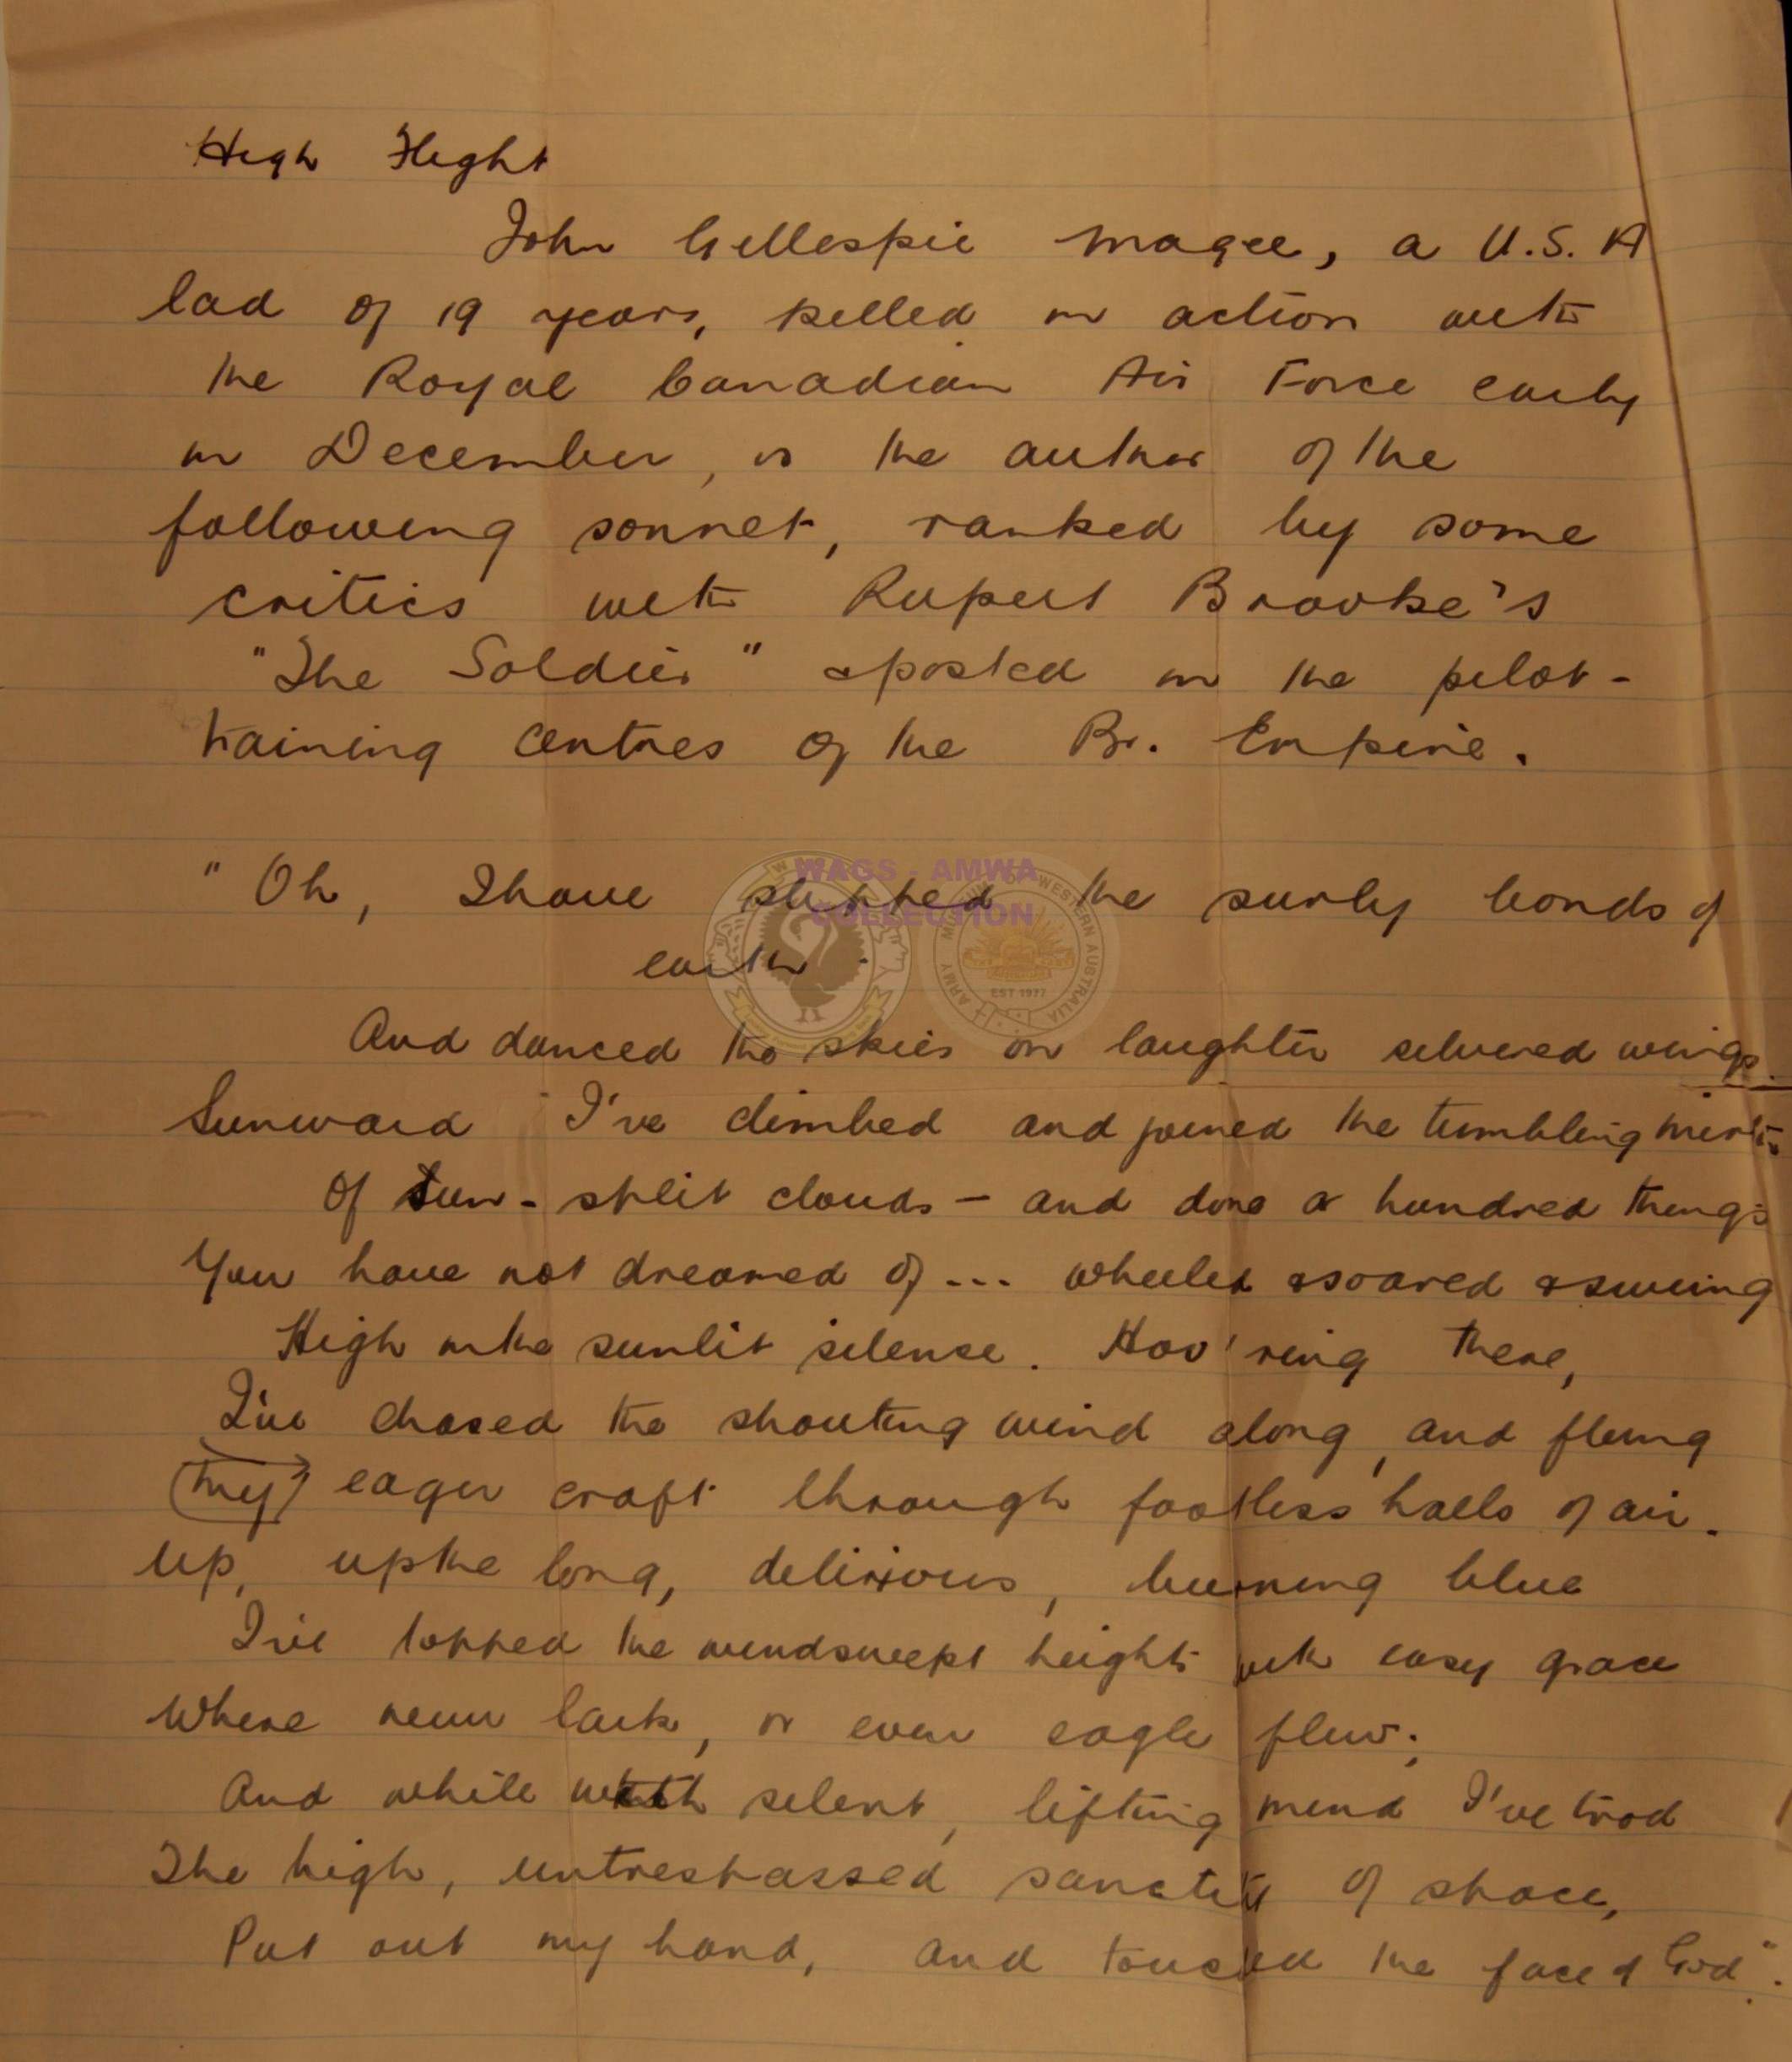 High Flight
John Gillespie Magee, a U.S.A
lad of 19 years, killed in action with
the Royal Canadian Air Force early
in December, is the author of the
following sonnet, ranked by some
critics with Rupert Brooke's
"The Soldier" & posted in the pilot-
training centres of the Br. Empire.
WAGS - AMWA
COLLECTION
"Oh, I have slipped the surly bonds of
earth
ARMY MUSEUM OF WESTERN AUSTRALIA
EST 1977
And danced the skies on laughter silvered wings
Sunward I've climbed and joined the tumbling mirth
Of sun-split clouds - and done a hundred things
You have not dreamed of ... wheeled & soared & swung
High in the sunlit silence. Hov'ring there,
I've chased the shouting wind along, and flung
(My) eager craft through footless halls of air.
Up, up the long, delirious, burning blue
I've topped the windswept heights with easy grace
Where never lark, or even eagle flew;
And while with silent, lifting mind I've trod
The high, untrespassed sanctity of space,
Put out my hand, and touched the face of God".